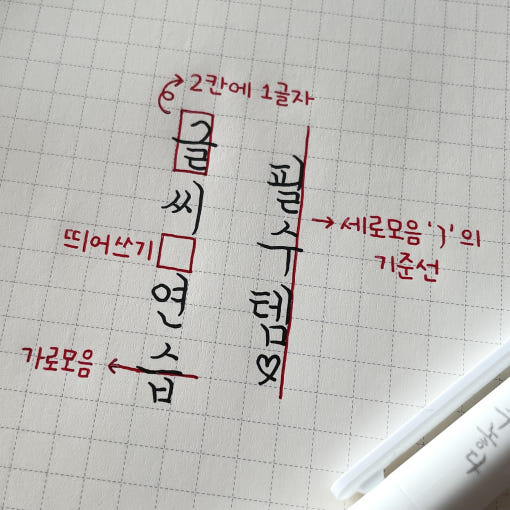 2칸에 1글자
글씨 연습
필수템♡
띄어쓰기
세로모음 'ㅣ'의
기준선
가로모음